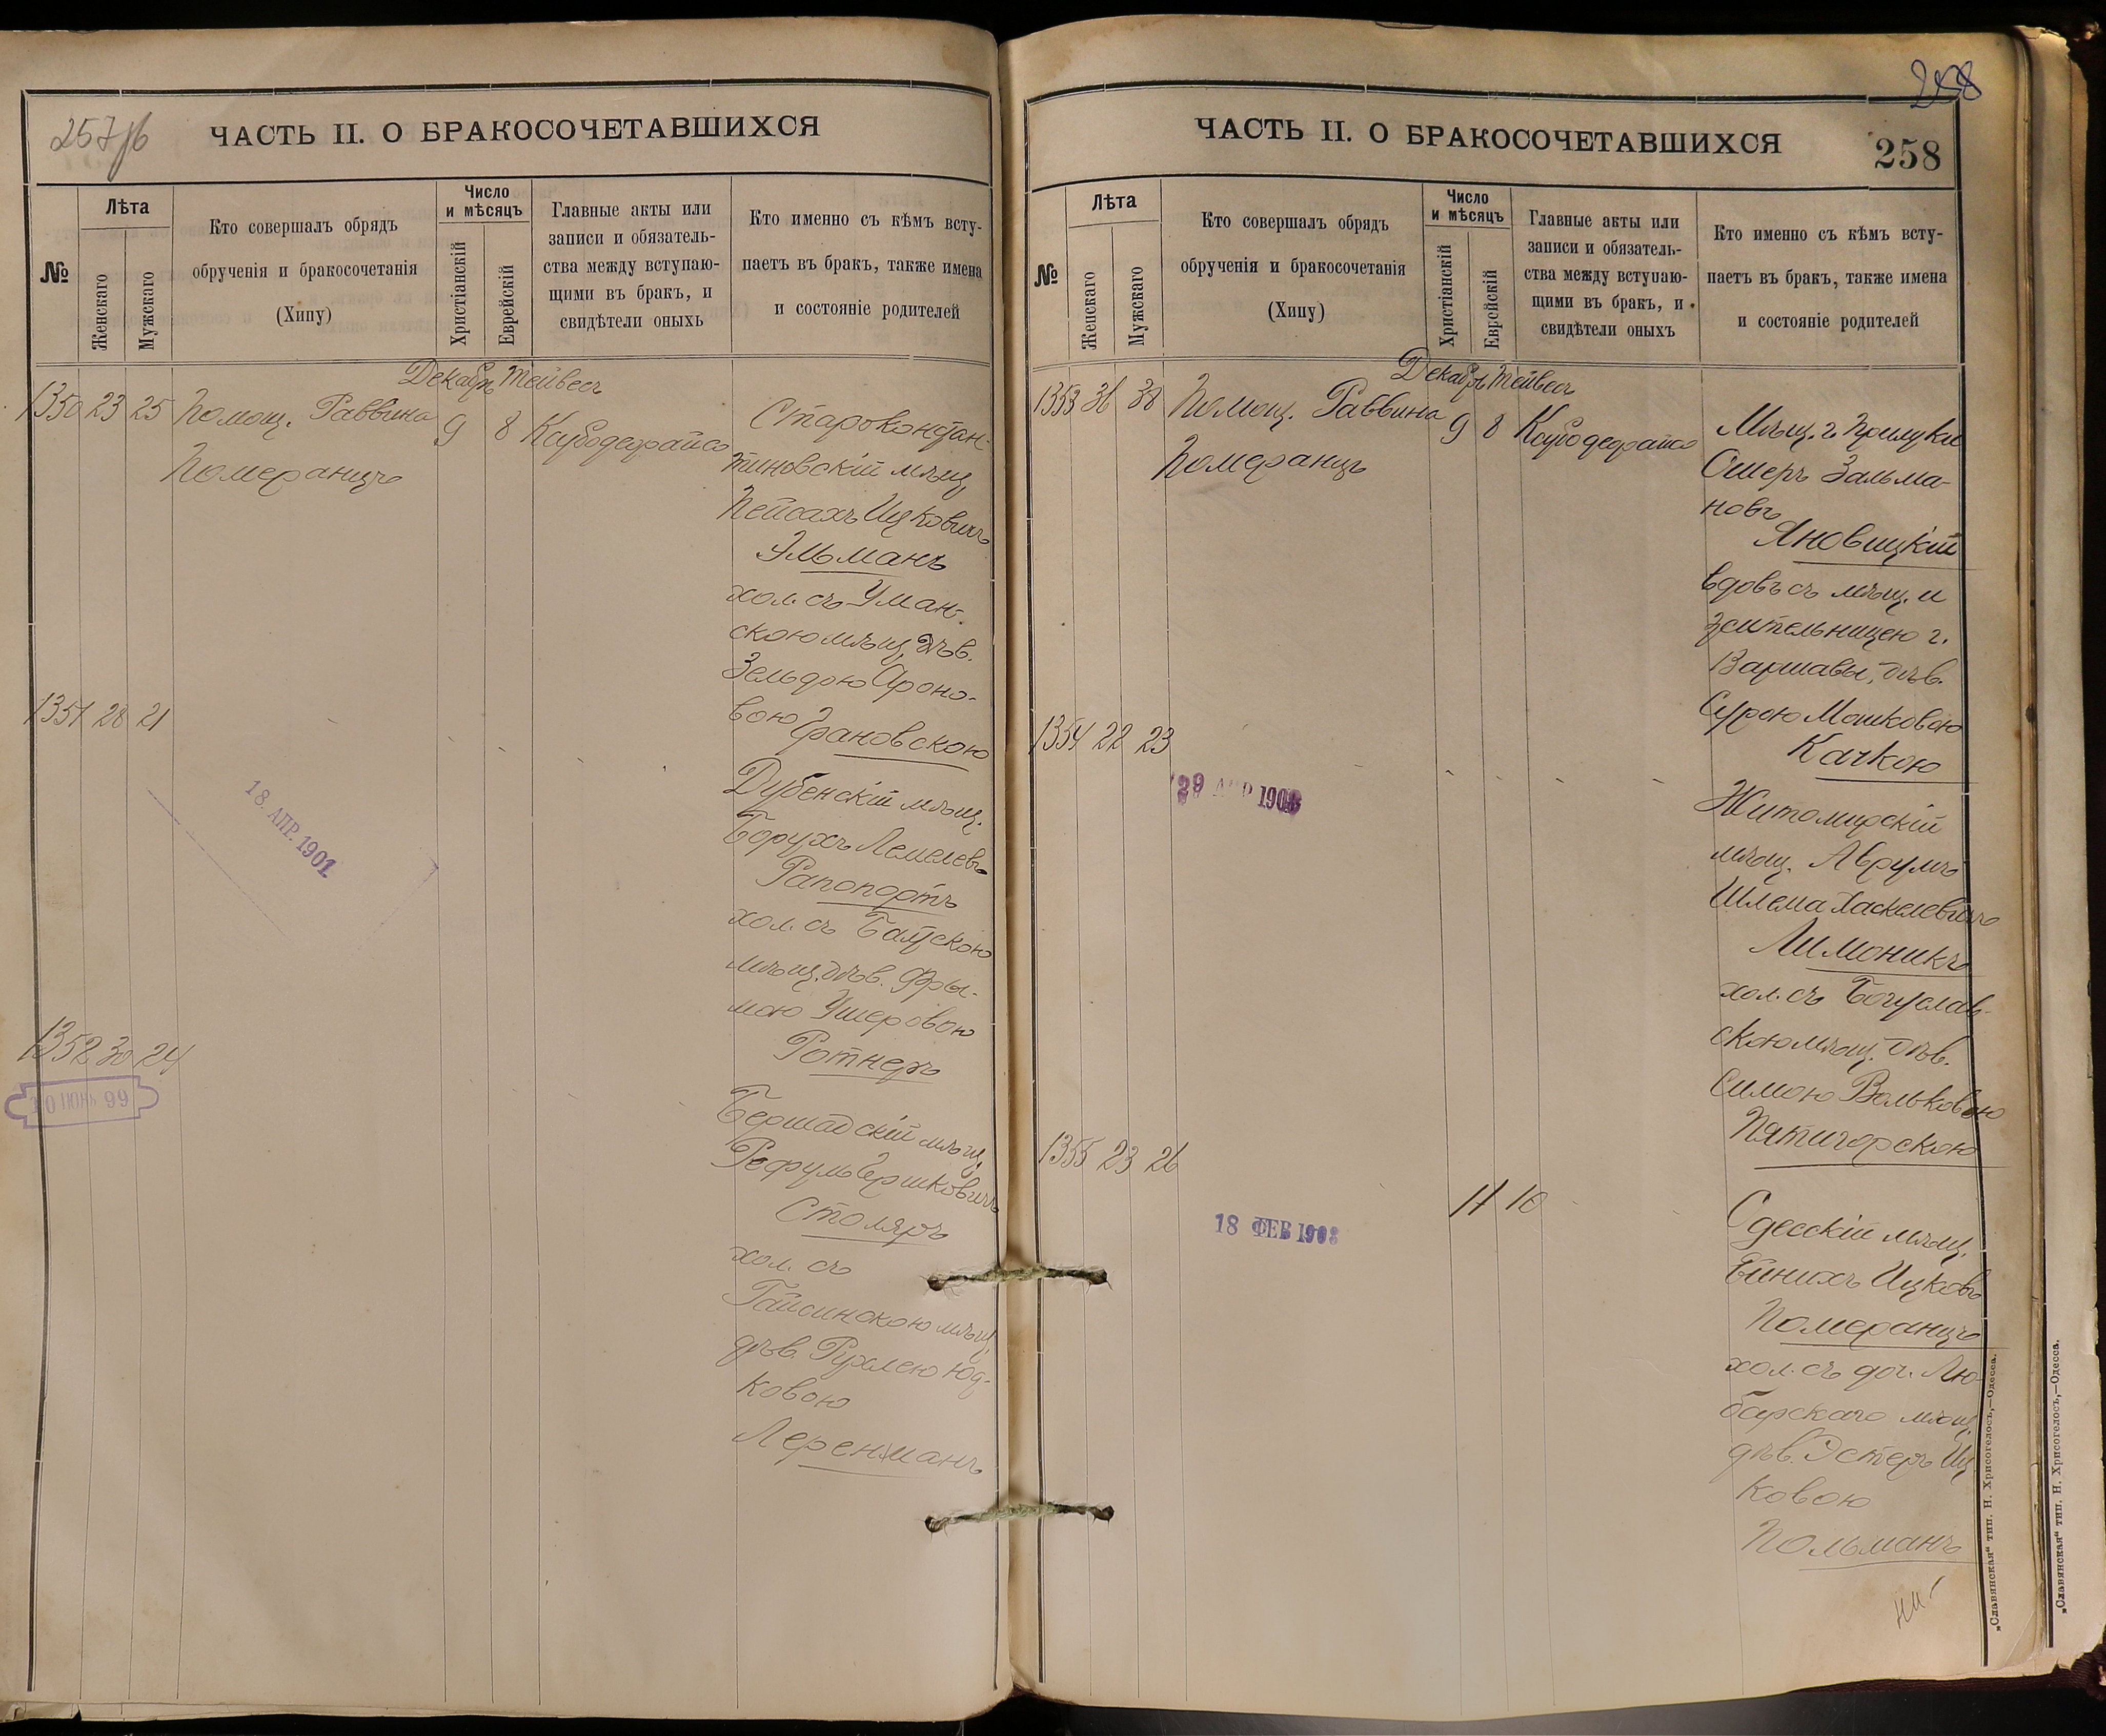 257 об
ЧАСТЬ II. О БРАКОСОЧЕТАВШИХСЯ
№
Лѣта
Женскаго
Мужскаго
Кто совершалъ обрядъ
обрученія и бракосочетанія
(Хипу)
Число
и мѣсяцъ
Христіанскій
Еврейскій
Главные акты или
записи и обязатель-
ства между вступаю-
щими въ бракъ, и
свидѣтели оныхъ
Кто именно съ кѣмъ всту-
паетъ въ бракъ, также имена
и состояніе родителей
Декабрь Тейвесъ
1350 23 25 Помощ. Раввина 9 8
Померанцъ
Староконстан-
тиновскій мѣщ.
Пейсахъ Ицковичъ
Эльманъ
хол. съ Уман-
скою мѣщ. дѣв.
Зельдою Ароно-
вою Грановскою
1351 28 21
18. АПР. 1901
Дубенскій мѣщ.
Борухъ Лемелевъ
Рапопортъ
хол. съ Балтскою
мѣщ. дѣв. Фры-
мою Ушеровою
Ротнеръ
1352 30 24
ІЮНЬ 99
Бершадскій мѣщ.
Рефуль Гершковичъ
Столяръ
хол. съ
Гайсинскою мѣщ.
дѣв. Рухлею Юд-
ковою
Леренманъ
258
ЧАСТЬ II. О БРАКОСОЧЕТАВШИХСЯ
258
№
Лѣта
Женскаго
Мужскаго
Кто совершалъ обрядъ
обрученія и бракосочетанія
(Хипу)
Число
и мѣсяцъ
Христіанскій
Еврейскій
Главные акты или
записи и обязатель-
ства между вступаю-
щими въ бракъ, и
свидѣтели оныхъ
Кто именно съ кѣмъ всту-
паетъ въ бракъ, также имена
и состояніе родителей
Декабрь Тейвесъ
1353 36 38 Помощ. Раввина 9 8
Померанцъ
Мѣщ. г. Прилуки
Ошеръ Зальма-
новъ
Яновицкій
вдовъ съ мѣщ. и
жительницею г.
Варшавы, дѣв.
Сурою Мошковою
Качкою
1354 22 23
29 АПР 1903
Житомирскій
мѣщ. Аврумъ
Шлема Хаскелевичъ
Лимоникъ
хол. съ Богуслав-
скою мѣщ. дѣв.
Симою Вольковою
Пятигорскою
1355 23 26
11 10
18 ФЕВ 1903
Одесскій мѣщ.
Ейнихъ Ицковъ
Померанцъ
хол. съ доч. Лю-
барскаго мѣщ.
дѣв. Эстеръ Иц
ковою
Польманъ
„Славянская“ тип. Н. Хрисогелосъ,—Одесса.
„Славянская“ тип. Н. Хрисогелосъ,—Одесса.